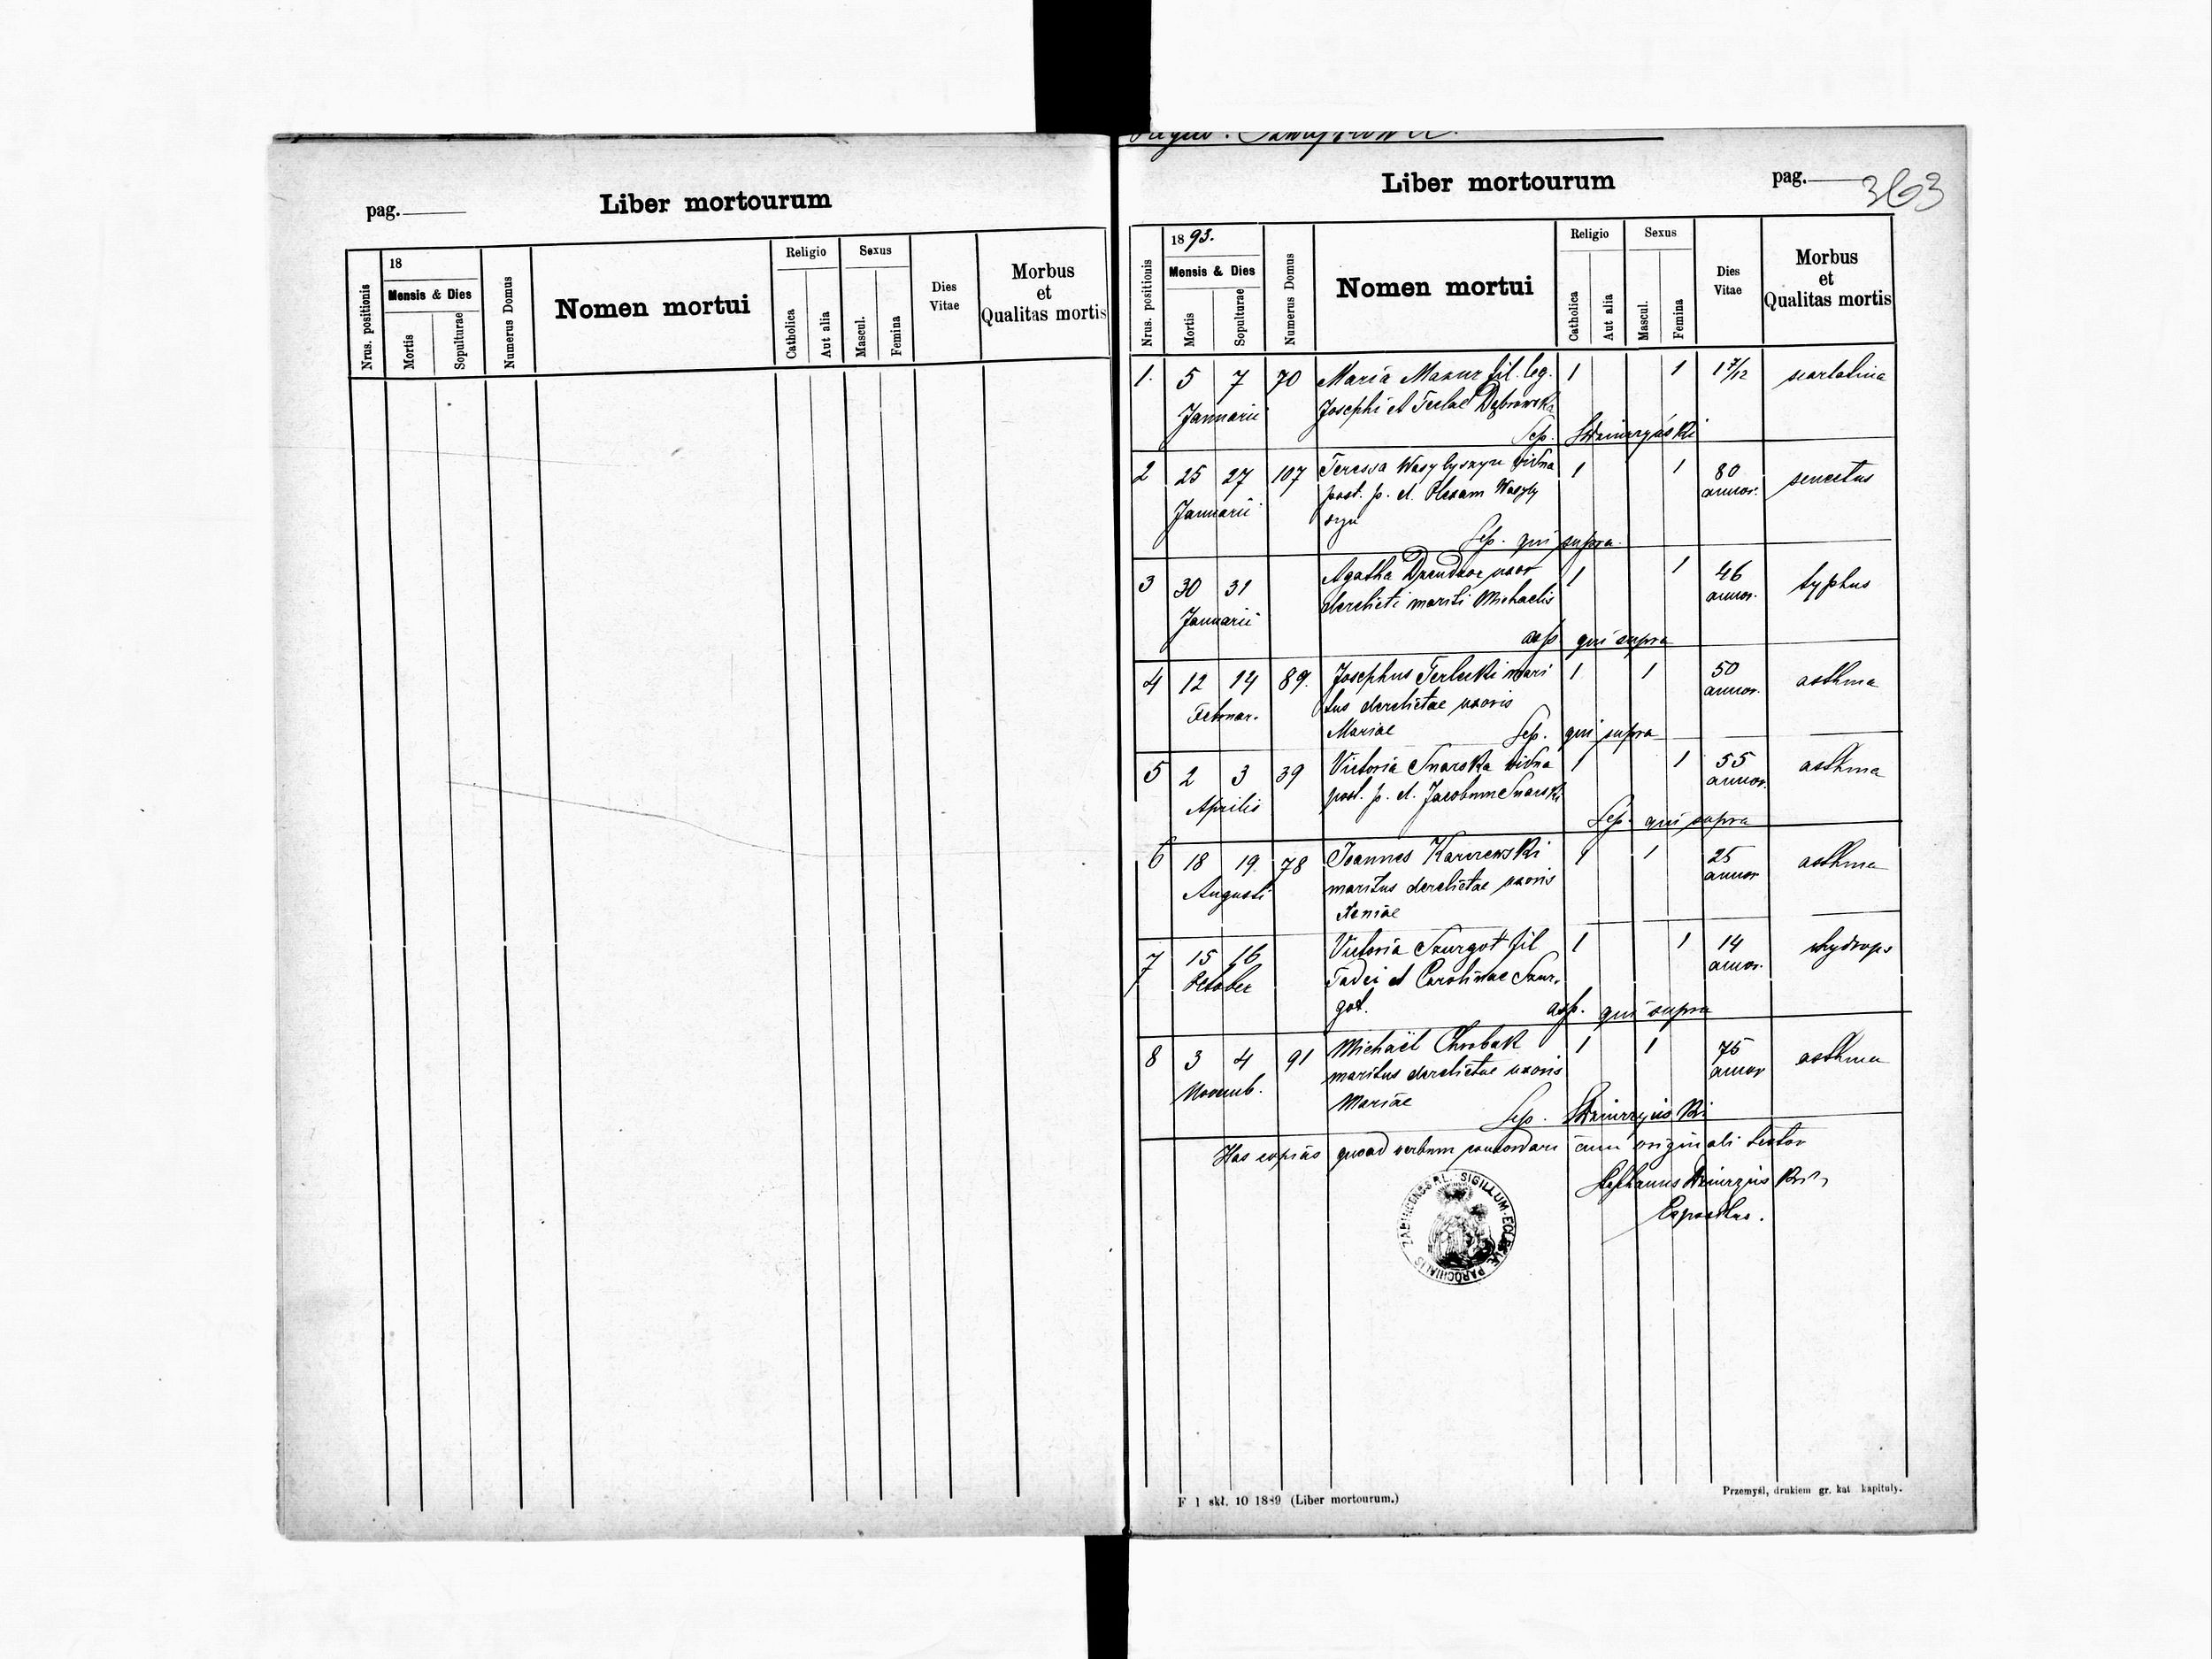 pag.
Liber mortourum
Nrus. positionis
18
Mensis & Dies
Mortis
Sopulturae
Numerus Domus
Nomen mortui
Religio
Catholica
Aut alia
Sexus
Mascul.
Femina
Dies
Vitae
Morbus
et
Qualitas mortis
Liber mortourum
pag.
363
Nrus. positionis
1893.
Mensis & Dies
Mortis
Sopulturae
Numerus Domus
Nomen mortui
Religio
Catholica
Aut alia
Sexus
Mascul.
Femina
Dies
Vitae
Morbus
et
Qualitas mortis
1. 5 7 70 Maria Mazur fil. leg. 1 1 1 7/12 scarlatina
Januarii Josephi et Teclae Dąbrowska
Sep.
2 25 27 107 Teressa Wasylyszyn vidua 1 1 80 senectus
Januarii post. p. d. Olexam Wasyly annor.
szyn
Sep. qui supra.
3 30 31 Agatha uxor 1 1 46 typhus
Januarii derelicti mariti Michaelis annor.
asp qui supra
4 12 14 89. Josephus Terlecki mari 1 1 50 asthma
Februar. tus derelictae uxoris annor.
Mariae Sep. qui supra
5 2 3 39 Victoria Snarska vidua 1 1 55 asthma
Aprilis post. p. d. Jacobum Snarski annor.
Sep. qui supra
6 18 19. 78 Joannes Karczewski 1 1 25 asthma
Augusti maritus derelictae uxoris annor
Xeniae
7 15 16 Victoria Szurgot fil 1 1 14 hydrops
October Tadei et Carolinae Szur. annor.
got. asp. qui supra
8 3 4 91 Michaël Chrobak 1 1 75 asthma
Novemb. maritus derelictae uxoris annor
Mariae
Sep.
Has copias quoad verbum concordare cum originali testor
Stephanus
Expositus.
SIGILLUM ECLESIAE PAROCHIALIS
F 1 skł. 10 1889 (Liber mortourum.)
Przemyśl, drukiem gr. kat kapituly.